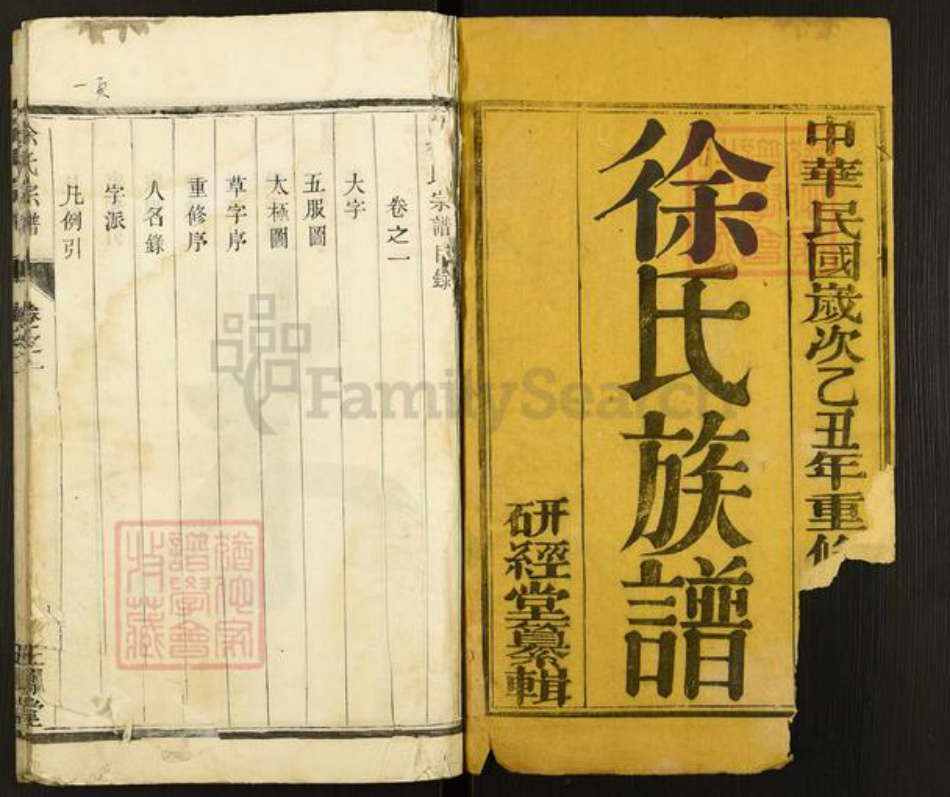 中華民國歲次乙丑年重修
徐氏族譜
研經堂纂輯
氏宗譜目録
卷之一
大字
五服圖
太極圖
草字序
重修序
人名錄
字派
凡例引
一頁
徐氏宗譜
卷之一
FamilySearch